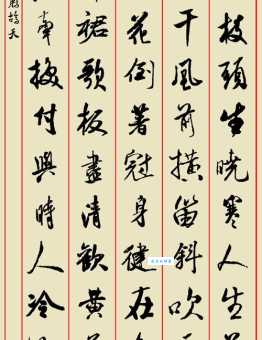 枝頭生曉寒人生
干風前橫笛斜吹
花倒著冠身健在
裙歌板盡清歡黃
牽挽付與時人冷
鴣天